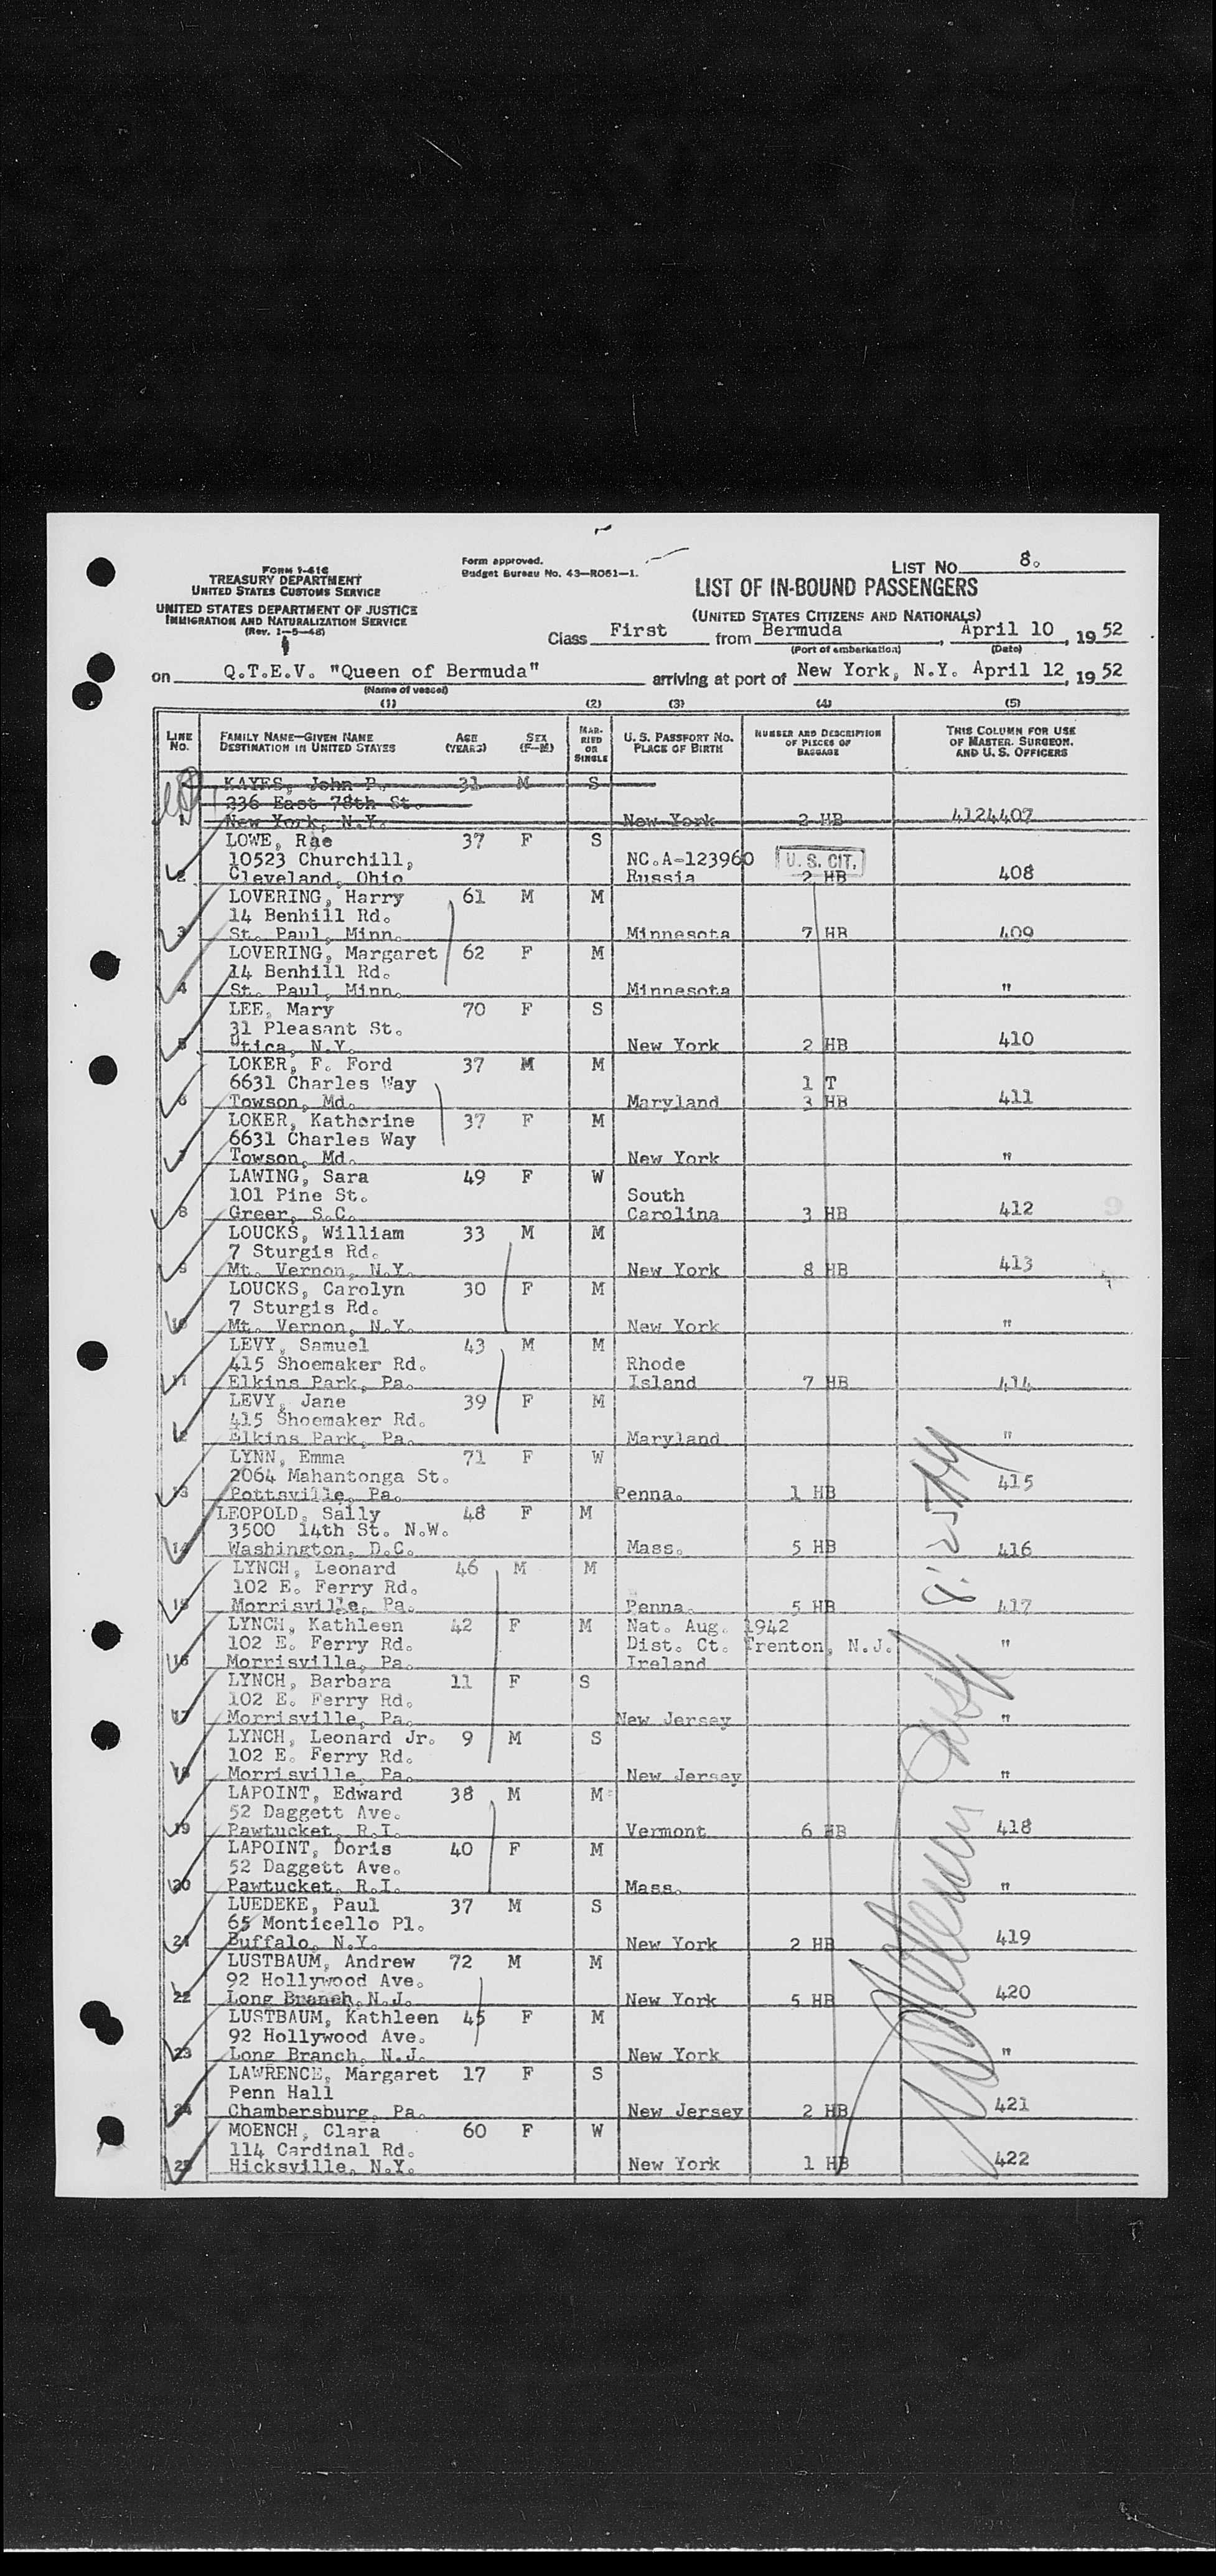 Form approved.
Budget Bureau No. 43—R061—1.
LIST No. 8.
FORM I-416
TREASURY DEPARTMENT
UNITED STATES CUSTOMS SERVICE
UNITED STATES DEPARTMENT OF JUSTICE
IMMIGRATION AND NATURALIZATION SERVICE
(Rev. 1—5—48)
LIST OF IN-BOUND PASSENGERS
(UNITED STATES CITIZENS AND NATIONALS)
Class First from Bermuda, April 10, 1952
(Port of embarkation) (Date)
on Q.T.E.V. "Queen of Bermuda" arriving at port of New York, N.Y. April 12, 1952
(Name of vessel)
(1) (2) (3) (4) (5)
LINE No. FAMILY NAME—GIVEN NAME DESTINATION IN UNITED STATES AGE (YEARS) SEX (F—M) MARRIED OR SINGLE U.S. PASSPORT No. PLACE OF BIRTH NUMBER AND DESCRIPTION OF PIECES OF BAGGAGE THIS COLUMN FOR USE OF MASTER, SURGEON, AND U. S. OFFICERS
KAYES, John P. 31 M S
236 East 78th St.
1 New York, N.Y. New York 2 HB 4124407
LOWE, Rae 37 F S
10523 Churchill, NC.A-123960 U. S. CIT.
2 Cleveland, Ohio Russia 2 HB 408
LOVERING, Harry 61 M M
14 Benhill Rd.
3 St. Paul, Minn. Minnesota 7 HB 409
LOVERING, Margaret 62 F M
14 Benhill Rd.
4 St. Paul, Minn. Minnesota "
LEE, Mary 70 F S
31 Pleasant St.
5 Utica, N.Y. New York 2 HB 410
LOKER, F. Ford 37 M M
6631 Charles Way 1 T
6 Towson, Md. Maryland 3 HB 411
LOKER, Katherine 37 F M
6631 Charles Way
7 Towson, Md. New York "
LAWING, Sara 49 F W
101 Pine St. South
8 Greer, S.C. Carolina 3 HB 412
LOUCKS, William 33 M M
7 Sturgis Rd.
9 Mt. Vernon, N.Y. New York 8 HB 413
LOUCKS, Carolyn 30 F M
7 Sturgis Rd.
10 Mt. Vernon, N.Y. New York "
LEVY, Samuel 43 M M
415 Shoemaker Rd. Rhode
11 Elkins Park, Pa. Island 7 HB 414
LEVY, Jane 39 F M
415 Shoemaker Rd.
12 Elkins Park, Pa. Maryland "
LYNN, Emma 71 F W
2064 Mahantonga St.
13 Pottsville, Pa. Penna. 1 HB 415
LEOPOLD, Sally 48 F M
3500 14th St. N.W.
14 Washington, D.C. Mass. 5 HB 416
LYNCH, Leonard 46 M M
102 E. Ferry Rd.
15 Morrisville, Pa. Penna. 5 HB 417
LYNCH, Kathleen 42 F M Nat. Aug. 1942
102 E. Ferry Rd. Dist. Ct. Trenton, N.J.
16 Morrisville, Pa. Ireland "
LYNCH, Barbara 11 F S
102 E. Ferry Rd.
17 Morrisville, Pa. New Jersey "
LYNCH, Leonard Jr. 9 M S
102 E. Ferry Rd.
18 Morrisville, Pa. New Jersey "
LAPOINT, Edward 38 M M
52 Daggett Ave.
19 Pawtucket, R.I. Vermont 6 HB 418
LAPOINT, Doris 40 F M
52 Daggett Ave.
20 Pawtucket, R.I. Mass. "
LUEDEKE, Paul 37 M S
65 Monticello Pl.
21 Buffalo, N.Y. New York 2 HB 419
LUSTBAUM, Andrew 72 M M
92 Hollywood Ave.
22 Long Branch, N.J. New York 5 HB 420
LUSTBAUM, Kathleen 45 F M
92 Hollywood Ave.
23 Long Branch, N.J. New York "
LAWRENCE, Margaret 17 F S
Penn Hall
24 Chambersburg, Pa. New Jersey 2 HB 421
MOENCH, Clara 60 F W
114 Cardinal Rd.
25 Hicksville, N.Y. New York 1 HB 422